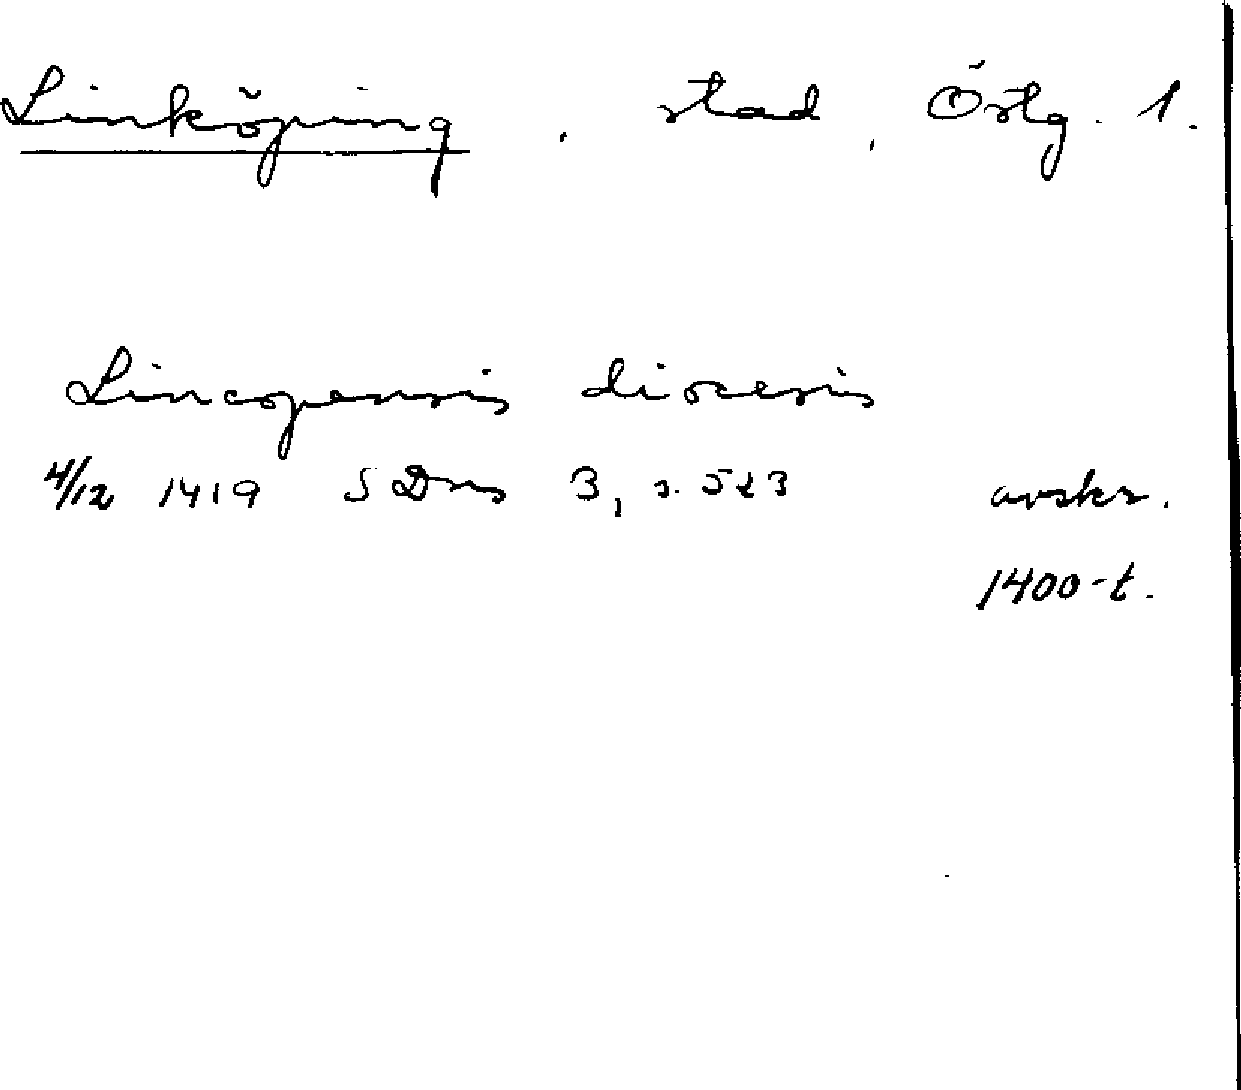 Linköping, stad, Östg. 1.
Lincopensis diocesis
4/12 1419 SDns 3, s. 523 avskr.
1400-t.